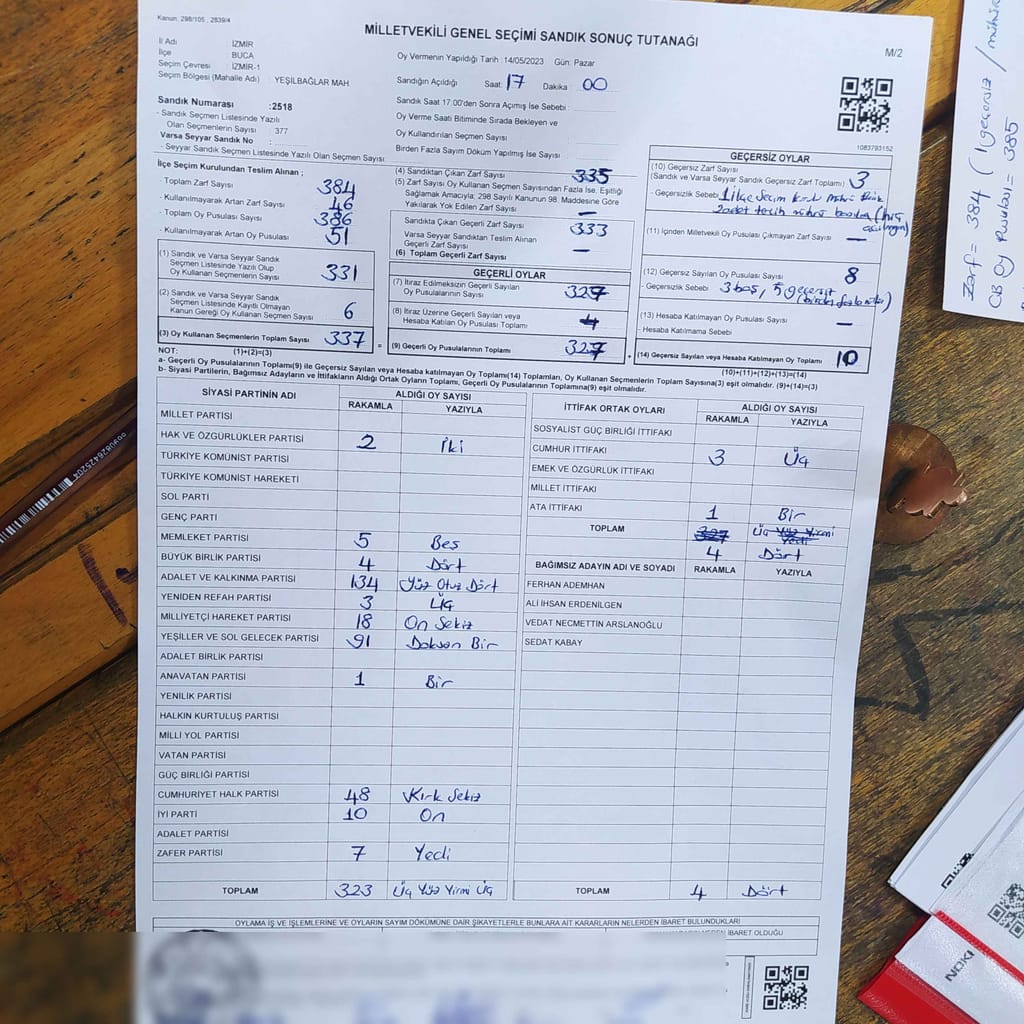 Kanun, 298/105 , 2839/4
MİLLETVEKİLİ GENEL SEÇİMİ SANDIK SONUÇ TUTANAĞI
M/2
İl Adı İZMİR
İlçe BUCA
Seçim Çevresi : İZMİR-1
Seçim Bölgesi (Mahalle Adı) YEŞİLBAĞLAR MAH
Oy Vermenin Yapıldığı Tarih :14/05/2023 Gün: Pazar
Sandığın Açıldığı Saat: 17 Dakika 00
Sandık Saat 17.00'den Sonra Açılmış İse Sebebi :
Oy Verme Saati Bitiminde Sırada Bekleyen ve
Oy Kullandırılan Seçmen Sayısı
Birden Fazla Sayım Döküm Yapılmış İse Sayısı
Sandık Numarası :2518
- Sandık Seçmen Listesinde Yazılı
Olan Seçmenlerin Sayısı : 377
Varsa Seyyar Sandık No :
- Seyyar Sandık Seçmen Listesinde Yazılı Olan Seçmen Sayısı
1083793152
İlçe Seçim Kurulundan Teslim Alınan ;
- Toplam Zarf Sayısı 384
- Kullanılmayarak Artan Zarf Sayısı 46
- Toplam Oy Pusulası Sayısı 386
- Kullanılmayarak Artan Oy Pusulası 51
(1) Sandık ve Varsa Seyyar Sandık
Seçmen Listesinde Yazılı Olup
Oy Kullanan Seçmenlerin Sayısı 331
(2) Sandık ve Varsa Seyyar Sandık
Seçmen Listesinde Kayıtlı Olmayan
Kanun Gereği Oy Kullanan Seçmen Sayısı 6
(3) Oy Kullanan Seçmenlerin Toplam Sayısı 337 =
(4) Sandıktan Çıkan Zarf Sayısı 335
(5) Zarf Sayısı Oy Kullanan Seçmen Sayısından Fazla İse, Eşitliği
Sağlamak Amacıyla; 298 Sayılı Kanunun 98. Maddesine Göre
Yakılarak Yok Edilen Zarf Sayısı —
Sandıkta Çıkan Geçerli Zarf Sayısı 333
Varsa Seyyar Sandıktan Teslim Alınan
Geçerli Zarf Sayısı —
(6) Toplam Geçerli Zarf Sayısı
GEÇERLİ OYLAR
(7) İtiraz Edilmeksizin Geçerli Sayılan
Oy Pusulalarının Sayısı 327
(8) İtiraz Üzerine Geçerli Sayılan veya
Hesaba Katılan Oy Pusulası Toplamı
(9) Geçerli Oy Pusulalarının Toplamı 327 +
GEÇERSİZ OYLAR
(10) Geçersiz Zarf Sayısı
(Sandık ve Varsa Seyyar Sandık Geçersiz Zarf Toplamı) 3
- Geçersizlik Sebebi 1 ilçe Seçim
2 adet tercih mührü
(11) İçinden Milletvekili Oy Pusulası Çıkmayan Zarf Sayısı —
(12) Geçersiz Sayılan Oy Pusulası Sayısı 8
- Geçersizlik Sebebi 3 boş, 5 geçersiz
(13) Hesaba Katılmayan Oy Pusulası Sayısı —
- Hesaba Katılmama Sebebi
(14) Geçersiz Sayılan veya Hesaba Katılmayan Oy Toplamı 10
NOT: (1)+(2)=(3)
(10)+(11)+(12)+(13)=(14)
a- Geçerli Oy Pusulalarının Toplamı(9) ile Geçersiz Sayılan veya Hesaba katılmayan Oy Toplamı(14) Toplamları, Oy Kullanan Seçmenlerin Toplam Sayısına(3) eşit olmalıdır. (9)+(14)=(3)
b- Siyasi Partilerin, Bağımsız Adayların ve İttifakların Aldığı Ortak Oyların Toplamı, Geçerli Oy Pusulalarının Toplamına(9) eşit olmalıdır.
SİYASİ PARTİNİN ADI ALDIĞI OY SAYISI
RAKAMLA YAZIYLA
MİLLET PARTİSİ
HAK VE ÖZGÜRLÜKLER PARTİSİ 2 İki
TÜRKİYE KOMÜNİST PARTİSİ
TÜRKİYE KOMÜNİST HAREKETİ
SOL PARTİ
GENÇ PARTİ
MEMLEKET PARTİSİ 5 Beş
BÜYÜK BİRLİK PARTİSİ 4 Dört
ADALET VE KALKINMA PARTİSİ 134 Yüz Otuz Dört
YENİDEN REFAH PARTİSİ 3 Üç
MİLLİYETÇİ HAREKET PARTİSİ 18 On Sekiz
YEŞİLLER VE SOL GELECEK PARTİSİ 91 Doksan Bir
ADALET BİRLİK PARTİSİ
ANAVATAN PARTİSİ 1 Bir
YENİLİK PARTİSİ
HALKIN KURTULUŞ PARTİSİ
MİLLİ YOL PARTİSİ
VATAN PARTİSİ
GÜÇ BİRLİĞİ PARTİSİ
CUMHURİYET HALK PARTİSİ 48 Kırk Sekiz
İYİ PARTİ 10 On
ADALET PARTİSİ
ZAFER PARTİSİ 7 Yedi
TOPLAM 323 Üç Yüz Yirmi Üç
İTTİFAK ORTAK OYLARI ALDIĞI OY SAYISI
RAKAMLA YAZIYLA
SOSYALİST GÜÇ BİRLİĞİ İTTİFAKI
CUMHUR İTTİFAKI 3 Üç
EMEK VE ÖZGÜRLÜK İTTİFAKI
MİLLET İTTİFAKI
ATA İTTİFAKI 1 Bir
TOPLAM 327 Üç Yüz Yirmi Yedi
4 Dört
BAĞIMSIZ ADAYIN ADI VE SOYADI RAKAMLA YAZIYLA
FERHAN ADEMHAN
ALİ İHSAN ERDENİLGEN
VEDAT NECMETTIN ARSLANOĞLU
SEDAT KABAY
TOPLAM 4 Dört
OYLAMA İŞ VE İŞLEMLERİNE VE OYLARIN SAYIM DÖKÜMÜNE DAİR ŞİKAYETLERLE BUNLARA AİT KARARLARIN NELERDEN İBARET BULUNDUKLARI
İBARET OLDUĞU
Zarf = 384 (1 geçersiz / mühür
CB Oy Pusulası = 385
NOKI